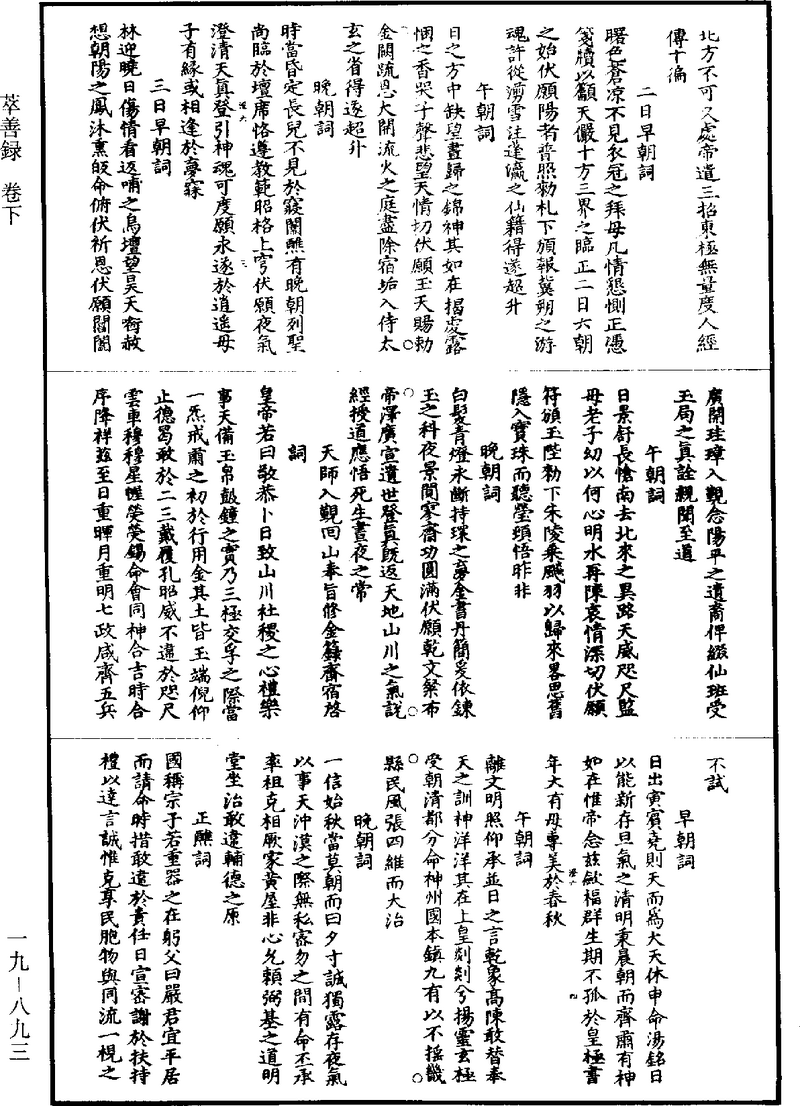 北方不可久處帝遣三招東極無量度人經
傳十徧
二日早朝詞
曙色蒼凉不見衣冠之拜母凡情懇惻正憑
箋牘以籲天儼十方三界之臨正二日六朝
之始伏願陽者普照勑札下頒報冀朔之游
魂許從瀕雪注蓬瀛之仙籍得遂超升
午朝詞
日之方中缺望晝歸之錦神其如在揭虔露
悃之香哭子聲悲望天情切伏願玉天賜勑
金闕䟽恩大開流火之庭盡除宿垢入侍太
玄之省得遂超升
晚朝詞
時當昏定長兒不見於寢闈醮有晚朝列聖
尚臨於壇席恪遵教範昭格上穹伏願夜氣
澄清天真登引神魂可度願永逐於逍遥母
子有緣或相逢於夢寐
三日早朝詞
林迎曉日傷情看返哺之烏壇望昊天銜赦
想朝陽之鳳沐熏皈命俯伏祈恩伏願閶闔
廣開珪璋入觀念陽平之遺裔俾綴仙班受
玉局之真詮親聞至道
午朝詞
日景舒長愴南去北來之異路天威咫尺監
母老子幼以何心明水再陳哀情深切伏願
符頒玉陛勑下朱陵乘飈羽以歸來畧思舊
隱入寶珠而聽瑩頭悟昨非
晚朝詞
白髮青燈未斷持環之夢金書丹簡爰依鍊
玉之科夜景闃寥齋功圓滿伏願乾文粲布
帝澤廣宣遺世登真既返天地山川之氣説
經授道應悟死生晝夜之常
天師入觀回山奉旨修金籙齋宿啓
詞
皇帝若曰敬恭卜日致山川社稷之心禮樂
事天備玉帛鼓鐘之實乃三極交孚之際當
一炁戒肅之初於行用金其土皆玉端倪仰
止德曷敢於二三戴履孔昭威不違於咫尺
雲車穆穆星幄熒熒錫命會同神合吉時合
序降祥兹至日重暉月重明七政咸齊五兵
不試
早朝詞
日出寅賓堯則天而爲大天休申命湯銘日
以能新存旦氣之清明秉晨朝而齊肅有神
如在惟帝念兹歛福群生期不孤於皇極書
年大有毋專美於春秋
午朝詞
離文明照仰承並日之言乾象高陳敢替奉
天之訓神洋洋其在上皇剡剡兮揚靈玄極
受朝清都分命神州國本鎮九有以不摇畿
縣民風張四維而大治
晚朝詞
一信始秋當莫朝而曰夕寸誠獨露存夜氣
以事天沖漠之際無私宻勿之間有命丕承
率祖克相厥家黄屋非心允賴弼基之道明
堂坐治敢違輔德之原
正醮詞
國稱宗子若重器之在躬父曰嚴君宜平居
而請命時措敢違於責任日宣審謝於扶持
禮以達言誠惟克享民胞物與同流一視之
萃善録　卷下
一九－八九三